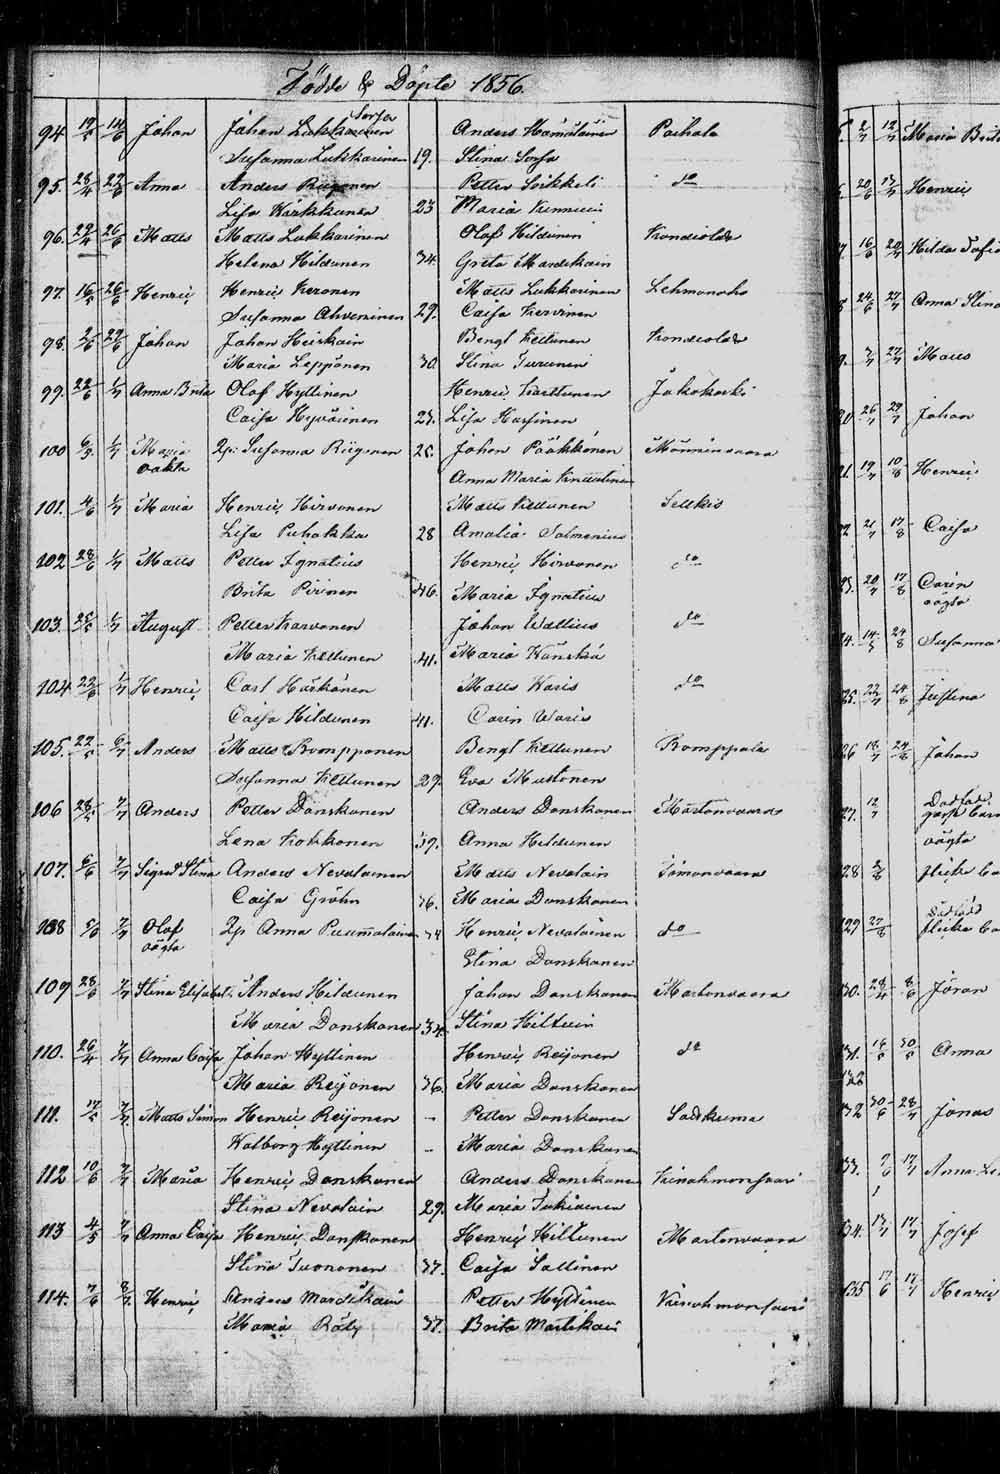 Födde & Döpte 1856.
Sorsa
94 19/5 14/6 Johan Johan Lukkarinen Anders Hämäläinen Paihola
Susanna Lukkarinen 19. Stina Sorsa
95. 28/4 Anna Anders Piiponen Petter Soikkeli do
Lisa Kärkkänen 23 Maria
96. 29/4 26/6 Matts Matts Lukkarinen Olof Hildunen Kondiolax
Helena Hildunen 34. Greta Mardikain
97. 16/5 26/6 Henric Henric Keronen Matts Lukkarinen Lehmonaho
Susanna Ahveninen 29. Caisa Kervinen
98. 2/6 29/6 Johan Johan Heiskain Bengt Kettunen Kondiolax
Maria Leppänen 30. Stina Turunen
99. 22/6 1/7 Anna Brita Olof Hyttinen Henric Karttunen Jakokoski
Caisa Hyvärinen 27. Lisa Karhinen
100 6/5 1/7 Maria Qp: Susanna Piiponen 25. Johan Pääkkönen Mönninvaara
oäkta Anna Maria
101. 4/6 1/7 Maria Henric Hirvonen Matts Kettunen Selkis
Lisa Puhakka 28 Amalia Salmenius
102 28/6 1/7 Matts Petter Ignatius Henric Hirvonen do
Brita Piirinen 46. Maria Ignatius
103. 25/5 1/7 August Petter Karvonen Johan Wallius do
Maria Kettunen 41. Maria Wänskä
104 22/6 1/7 Henric Carl Härkönen Matts Waris do
Caisa Hildunen 41. Carin Waris
105. 22/5 6/7 Anders Matts Romppanen Bengt Kettunen Romppala
Susanna Kettunen 29. Eva Mustonen
106 28/5 7/7 Anders Petter Danskanen Anders Danskanen Martonvaara
Lena Kokkonen 39. Anna Hildunen
107. 6/6 7/7 Sigrid Stina Anders Nevalainen Matts Nevalain Timonvaara
Caisa Gröhn 36. Maria Danskanen
108 5/6 7/7 Olof Qp: Anna Puumalainen 34 Henric Nevalainen do
oägta Stina Danskanen
109 28/6 7/7 Stina Elisabet Anders Hildunen Johan Danskanen Martonvaara
Maria Danskanen 34. Stina Hiltuin
110. 26/4 7/7 Anna Caisa Johan Hyttinen Henric Reijonen do
Maria Reijonen 36. Maria Danskanen
111. 17/5 7/7 Matts Simon Henric Reijonen - Petter Danskanen Salkuma
Walborg Hyttinen - Maria Danskanen
112 10/6 7/7 Maria Henric Danskanen Anders Danskanen
Stina Nevalain 29. Maria Tukiainen
113 4/5 7/7 Anna Caisa Henric Danskanen Henric Hiltunen Martonvaara
Stina Tuononen 37. Caisa Sallinen
114. 7/6 8/7 Henric Anders Mardikain Petter Hyttinen
Maria Räty 37. Brita Martikai
2/7 12/7 Maria Brita
20/6 13/7 Henric
16/6 20/7 Hilda Sofia
24/6 27/7 Anna Stina
3/7 27/7 Matts
20 26/7 29/7 Johan
21. 19/7 10/8 Henric
22 21/7 17/8 Caisa
23. 20/7 17/8 Carin
oägta
24. 14/5 24/8 Susanna
25. 22/7 24/8 Justina
26 18/7 24/8 Johan
27. 12/7 Dödfödd
oägta
128 flicka
Dödfödd
129 27/8 flicka
130. 29/4 8/6 Jöran
131. Anna
132 30/6 28/7 Jonas
133. 7/6 17/7 Anna
134. 13/7 17/7 Josef
135 17/6 17/7 Henric